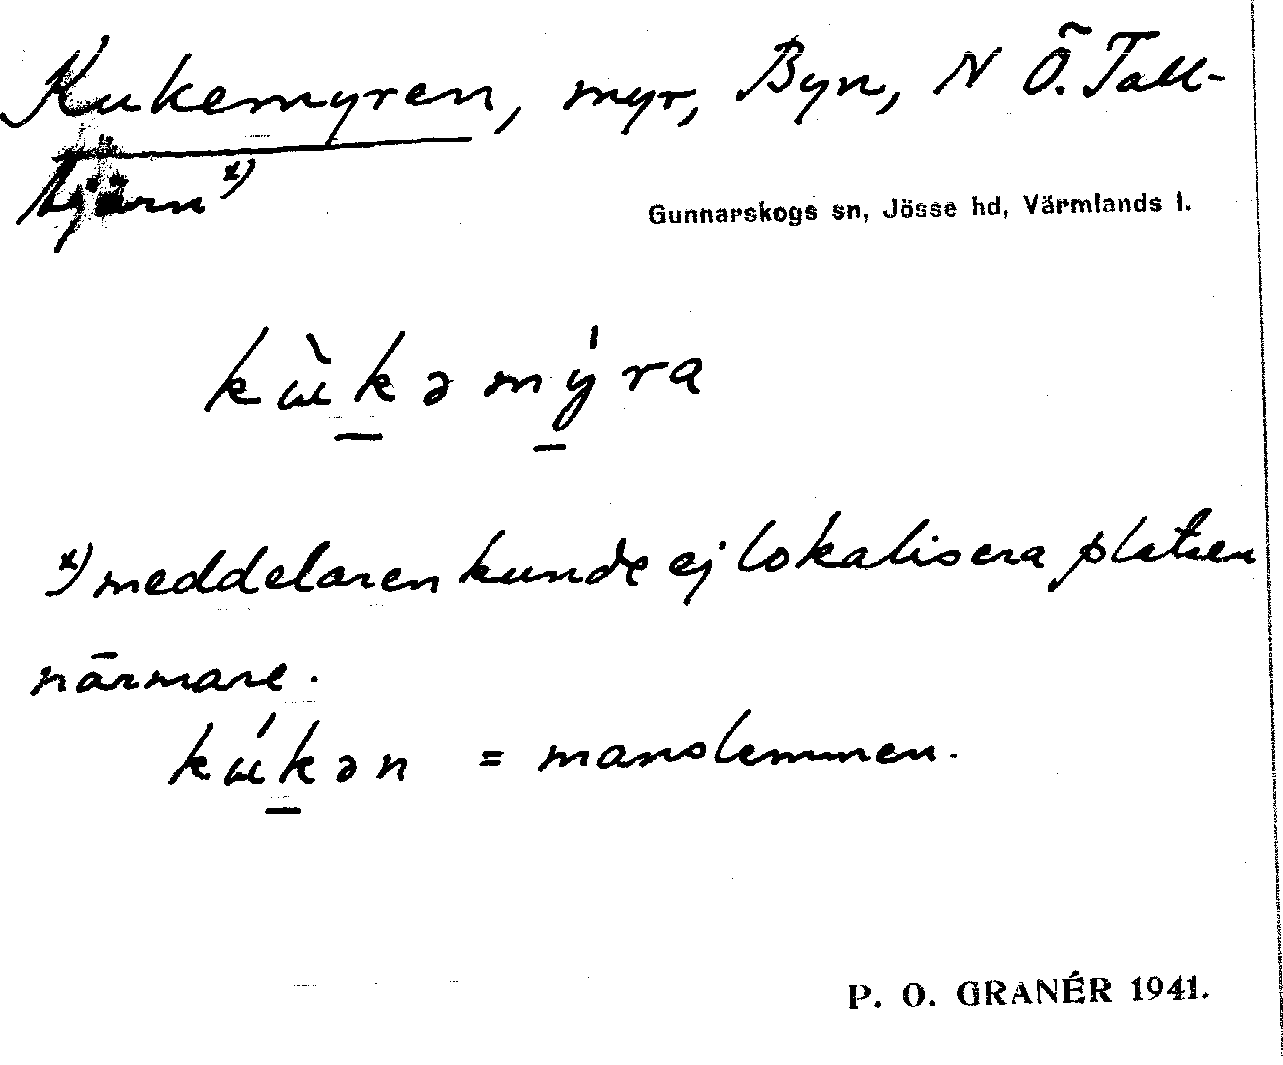 Kukemyren, myr, Byn, N Ö. Tall-
tjärn x)
Gunnarskogs sn, Jösse hd, Värmlands l.
kɯ̀kəmýra
x) meddelaren kunde ej lokalisera platsen
närmare.
kɯ́kən = manslemmen.
P. O. GRANÉR 1941.